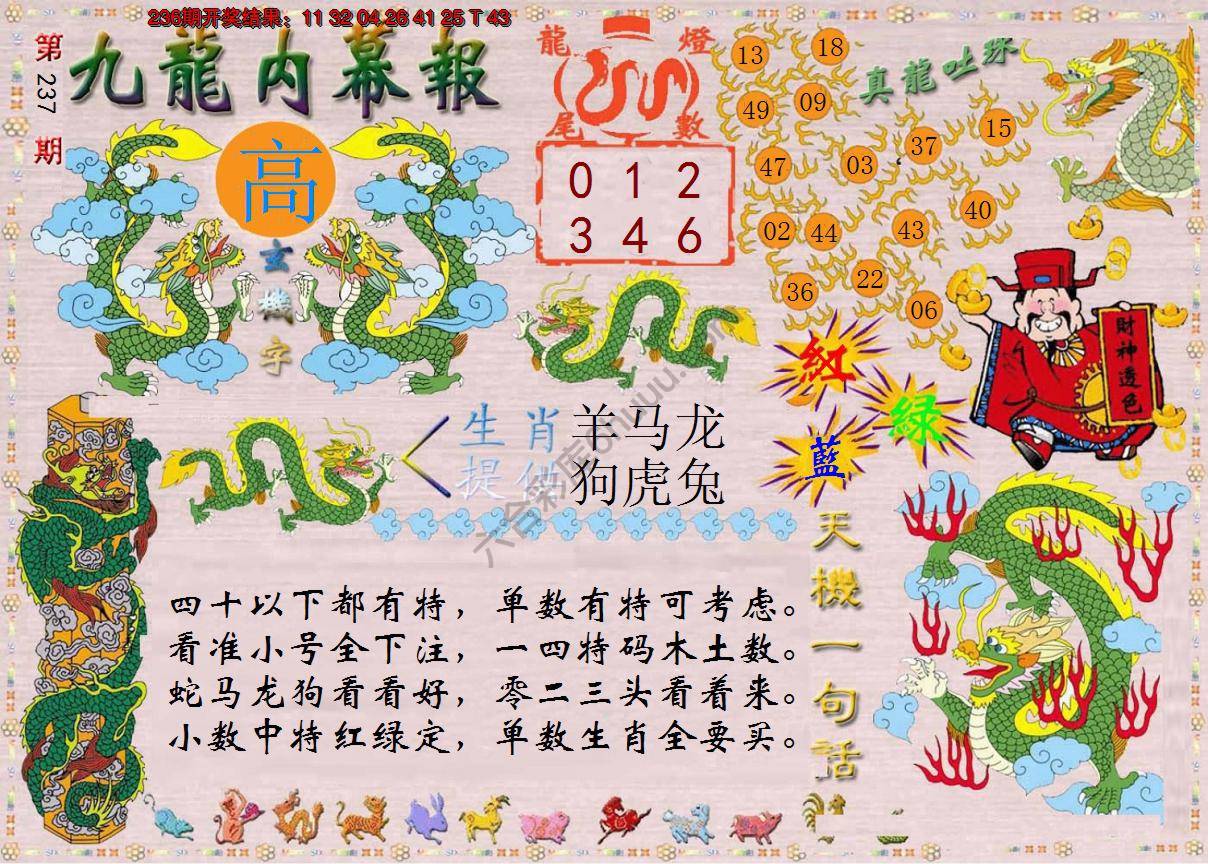 236期开奖结果：11 32 04 26 41 25 T 43
第237期
九龍内幕報
高
玄機字
龍燈尾數
0 1 2
3 4 6
真龍吐珠
13 18
49 09
47 03 37 15
02 44 43 40
36 22 06
財神透色
紅
綠
藍
生肖提供
羊马龙
狗虎兔
天機一句話
四十以下都有特，单数有特可考虑。
看准小号全下注，一四特码木土数。
蛇马龙狗看看好，零二三头看着来。
小数中特红绿定，单数生肖全要买。